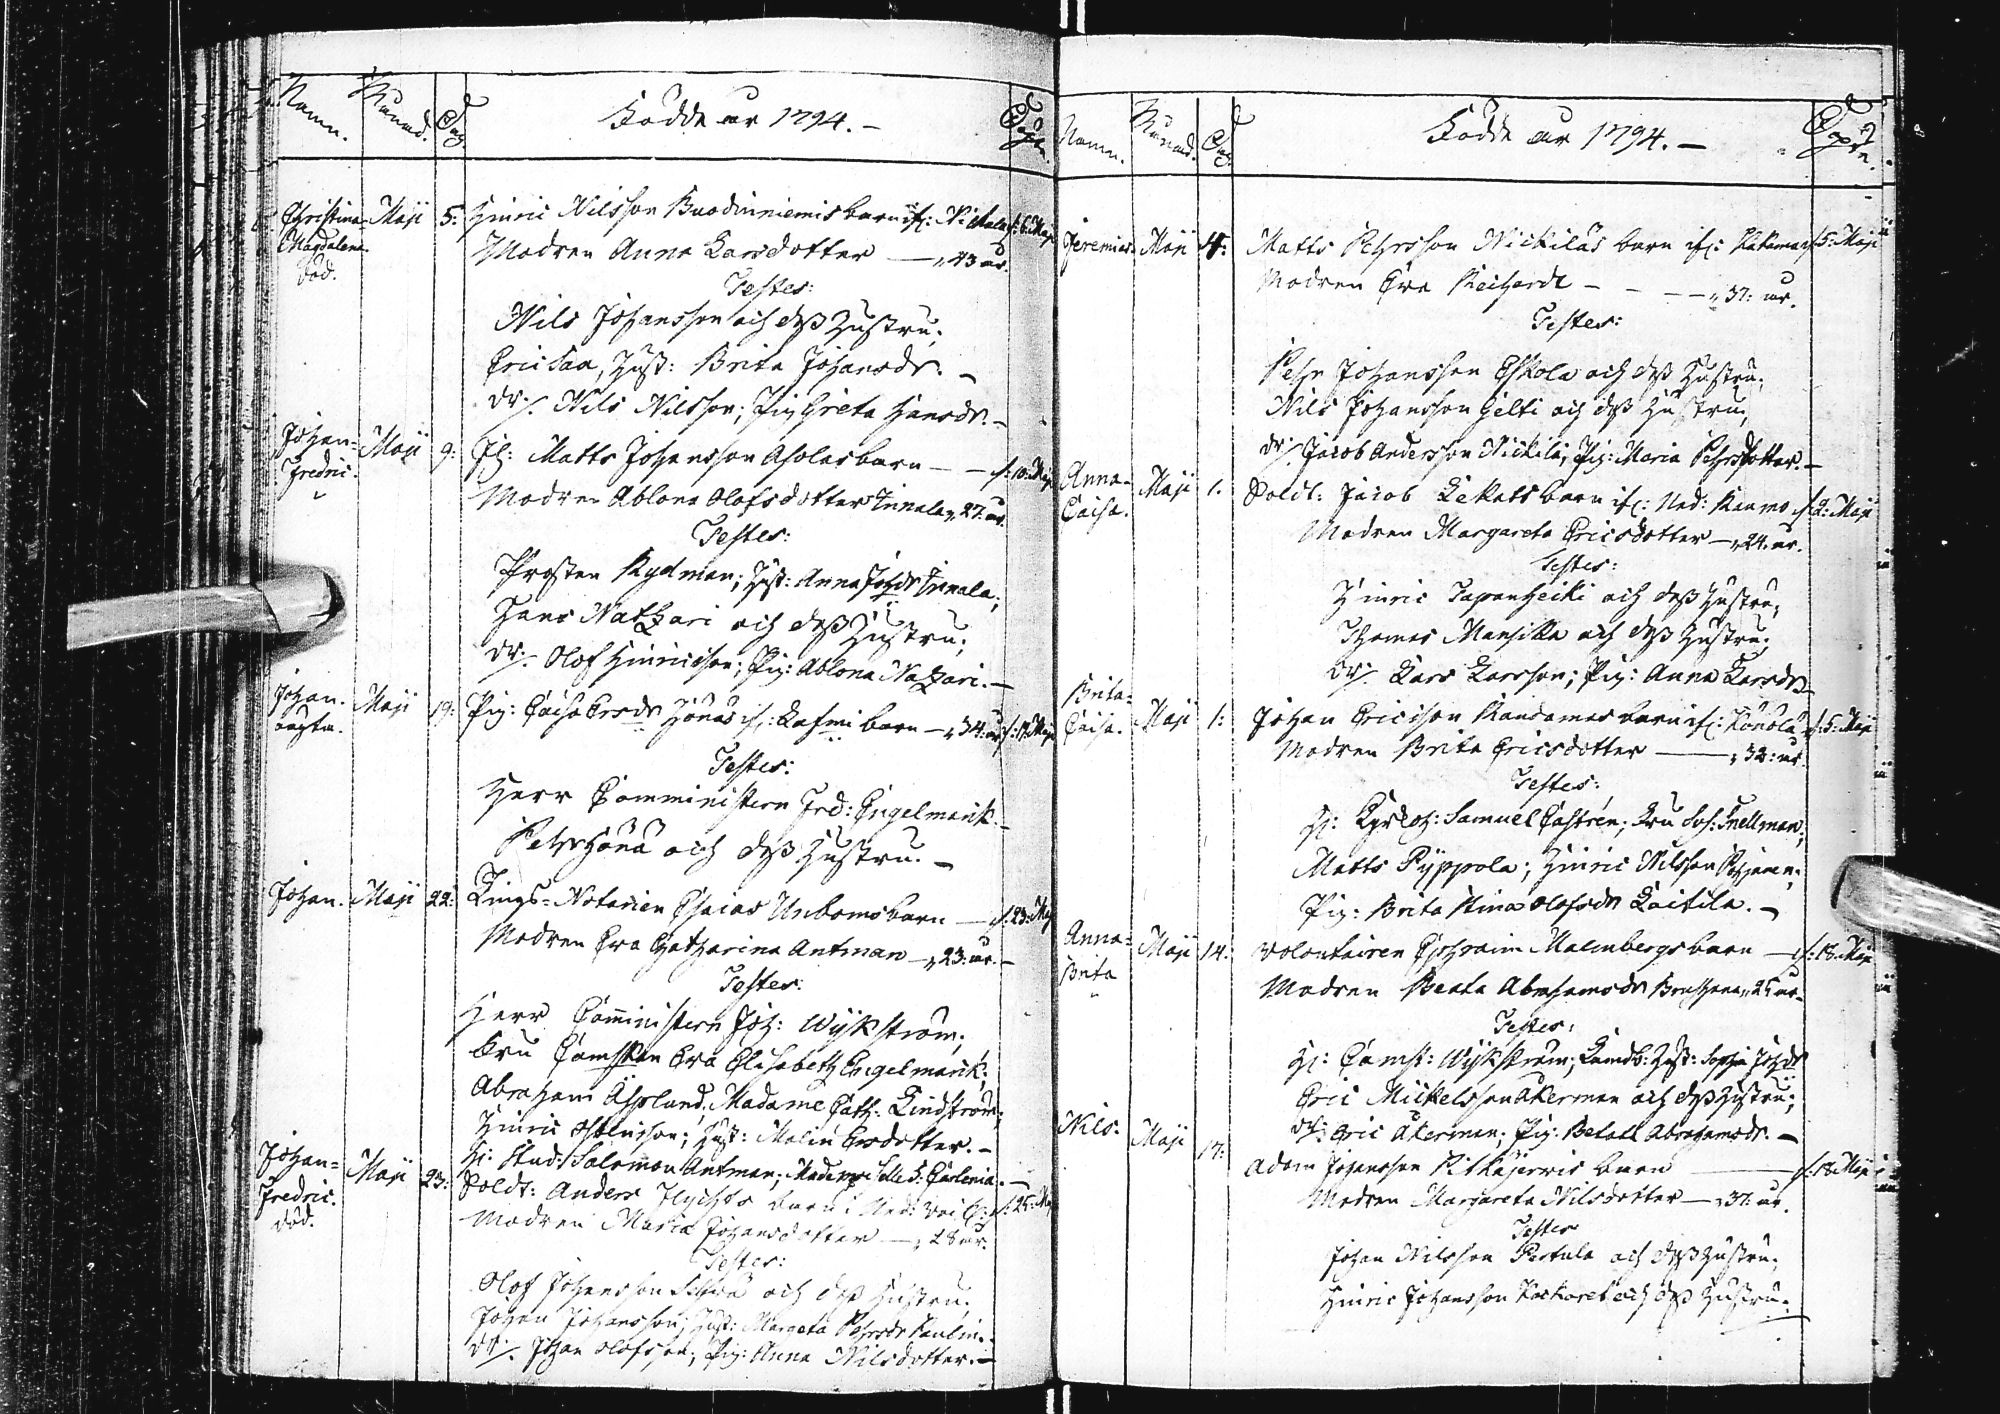 Namn. Månad. Dag. Födde år 1794. – Döpte.
Christina Maji 5: Hinric Nilsson Buodinniemis barn if: f: 6: Maji
Magdalena Modren Anna Larsdotter — „ 43 år.
död.
Testes:
Nils Johansson och dess Hustru;
Eric Hust: Brita Johansdr. –
Dr:/. Nils Nilsson; Pig Greta Hansdr. –
Johan= Maji 9: Matts Johansson Aholas barn – – f: 10: Maji
Fredric. Modren Ablona Olofsdotter Innala „ 27: år.
Testes:
Prosten Rydman; Hust: Anna Johsdr Innala;
Hans Natzari och dess Hustru;
Dr:/. Olof Hinricsson; Pig: Ablona Natzari. –
Johan. Maji 19: Pig: Caisa Ersdr Hönäs if: barn – „ 34: år f: Maji
Testes:
Herr Comministern Fred: Engelmarck. –
Pehr Hönä och dess Hustru. –
Johan. Maji 22: Tings=Notarien Esaias Unboms barn — f: 23: Maj
Modren Eva Catharina Antman – „ 23: år. –
Testes:
Herr Comministern Joh: Wijkström;
Fru Eva Elisabeth Engelmarck;
Abraham Äsplund; Madame Cath: Lindström;
Hinric Hust: Malin Ersdotter. –
H: Stud: Salomon Antman;
Johan= Maji 23: Soldt: Anders barn i Ned: f: 25: Maj
Fredric. Modren Maria Johansdotter — „ 28 år.
död.
Testes:
Olof Johansson och dess Hustru;
Johan Johansson; Hust: Margeta Pehrsdr
Dr:/. Johan Olofsson; Pig: Anna Nilsdotter. –
Namn. Månad. Dag. Födde år 1794. – Döpte.
Jeremias Maji 4: Matts Pehrsson Nickiläs barn if: f: 5: Maji
Modren Eva Reichardt – – – – „ 37: år.
Testes:
Pehr Johansson Eskola och dess Hustru;
Nils Johansson Gelti och dess Hustru;
Dr:/. Jacob Andersson Nickilä; Pig: Maria Pehrsdotter. –
Anna= Maji 1. Soldt: Jacob Lekats barn if: Ned: Raumo f: 2: Maji
Caisa. Modren Margareta Ericsdotter – „ 24. år.
Testes:
Hinric Tapanheicki och dess Hustru;
Thomas Mansikka och dess Hustru;
Dr:/. Lars Larsson; Pig: Anna Larsdr –
Brita= Maji 1: Johan Ericsson Randamas barn if: Könölä f: 5: Maji
Caisa. Modren Brita Ericsdotter — „ 32: år.
Testes:
H: Samuel Castrén; Fru Sos: Snellman;
Matts Pyppola; Hinric Nilsson
Pig: Brita Stina Olofsdr Laitila. –
Anna= Maji 14: Volontairen Ephraim Malmbergs barn — f: 18: Maji
Brita Modren Beata Abrahamsdr „ 25 år –
Testes:
H: Comst: Wijkström; Hust: Sophia Johsdr
Eric Mickelsson Åkerman och dess Hustru;
Dr: Eric Åkerman; Pig: Beata Abrahamsdr. –
Nils. Maji 17: Adam Johansson Pitkäjerwis barn — f: 18: Maji
Modren Margareta Nilsdotter – „ 37. år.
Testes
Johan Nilsson Pertula och dess Hustru;
Hinric Johansson och dess Hustru. –